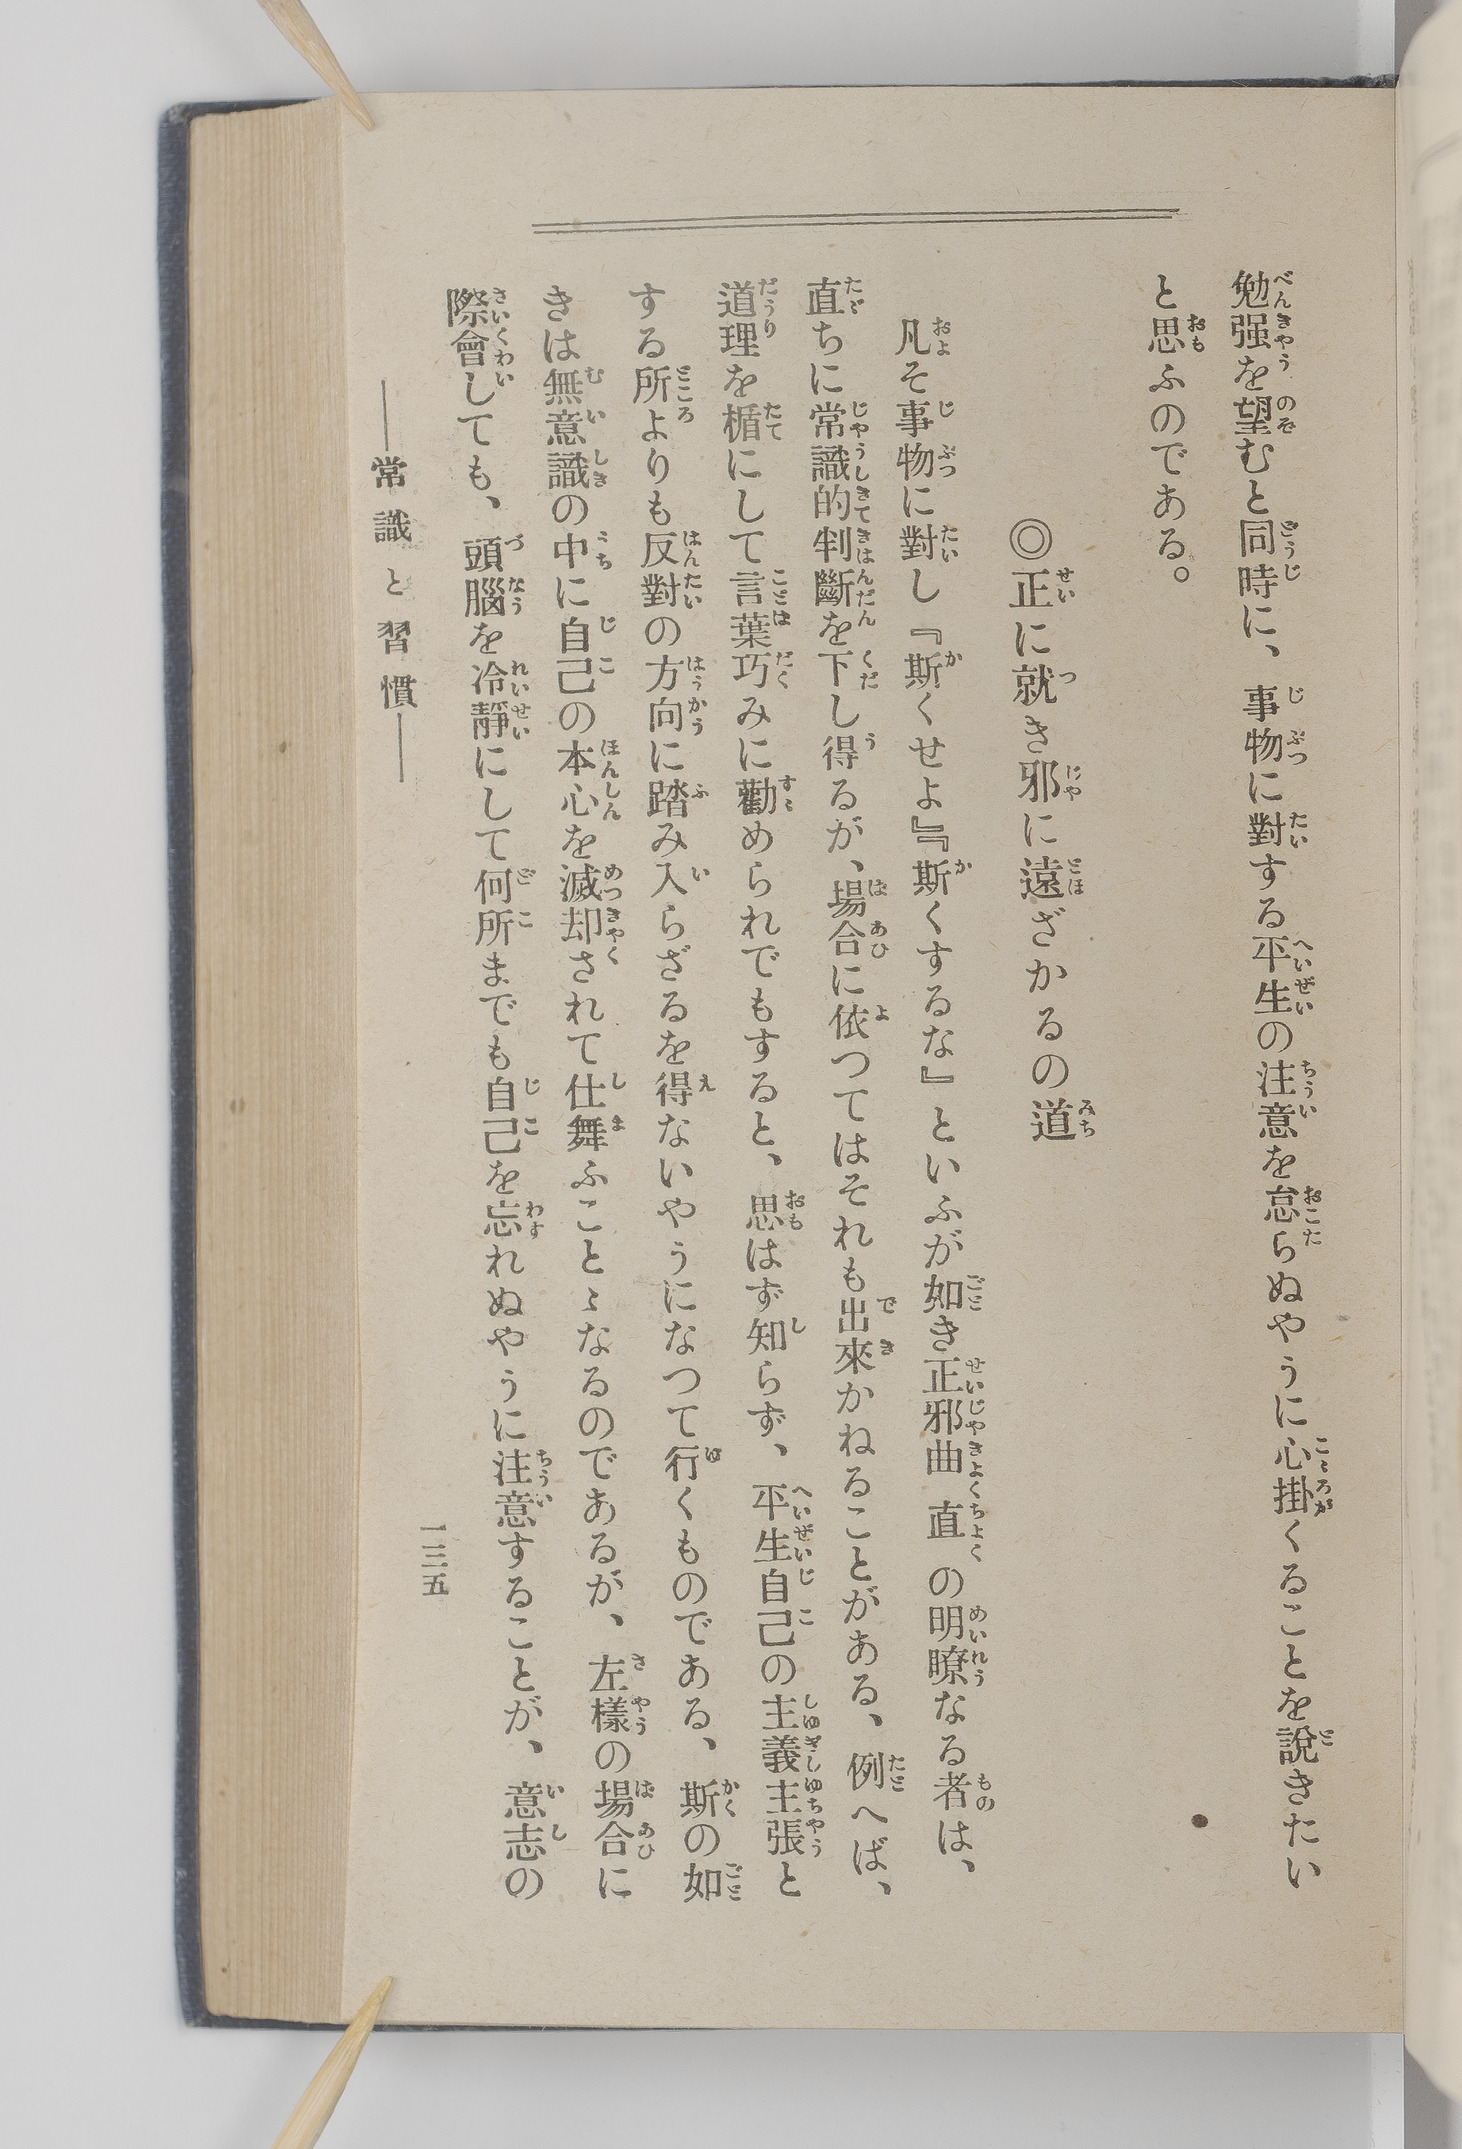 勉强を望むと同時に、事物に對する平生の注意を怠らぬやうに心掛くることを說きたい
と思ふのである。
◎正に就き邪に遠ざかるの道
凡そ事物に對し『斯くせよ』『斯くするな』といふが如き正邪曲直の明瞭なる者は、
直ちに常識的判斷を下し得るが、場合に依つてはそれも出來かねることがある、例へば、
道理を楯にして言葉巧みに勸められでもすると、思はず知らず、平生自己の主義主張と
する所よりも反對の方向に踏み入らざるを得ないやうになつて行くものである、斯の如
きは無意識の中に自己の本心を滅却されて仕舞ふことゝなるのであるが、左樣の場合に
際會しても、頭腦を冷靜にして何所までも自己を忘れぬやうに注意することが、意志の
―常識と習慣―
一三五